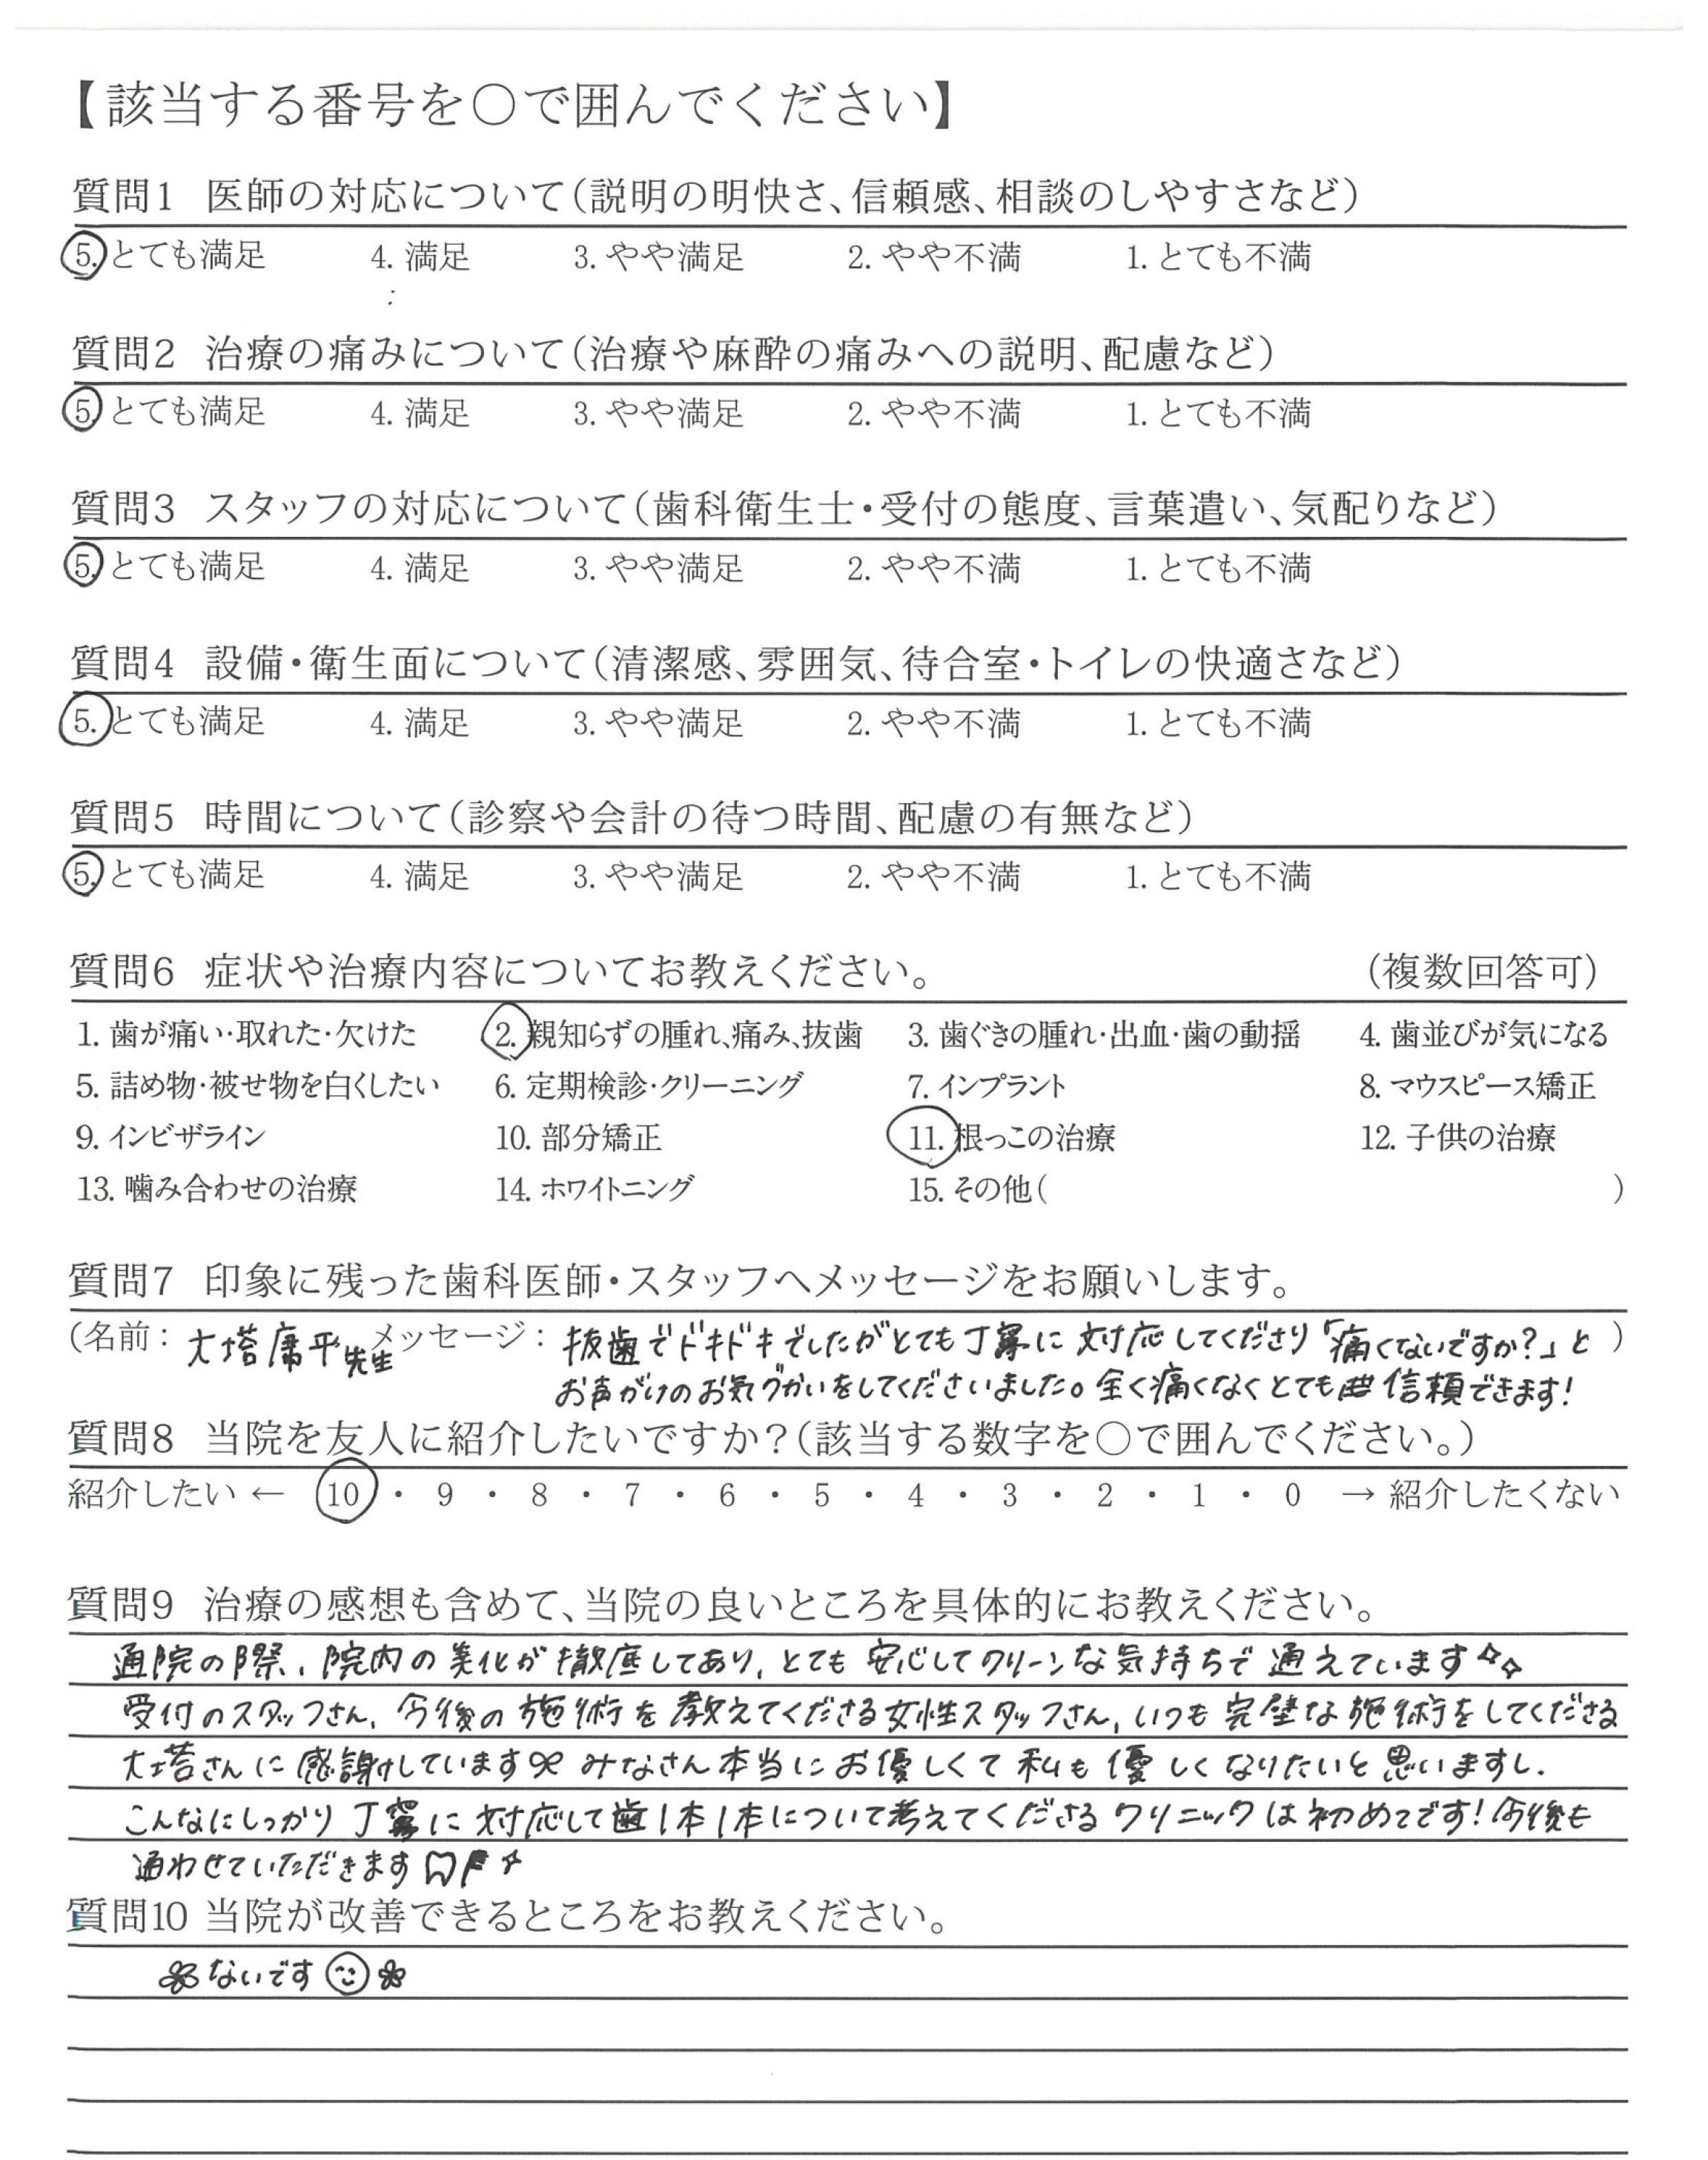 【該当する番号を○で囲んでください】
質問1 医師の対応について(説明の明快さ、信頼感、相談のしやすさなど)
5. とても満足 4. 満足 3. やや満足 2. やや不満 1. とても不満
質問2 治療の痛みについて(治療や麻酔の痛みへの説明、配慮など)
5. とても満足 4. 満足 3. やや満足 2. やや不満 1. とても不満
質問3 スタッフの対応について(歯科衛生士・受付の態度、言葉遣い、気配りなど)
5. とても満足 4. 満足 3. やや満足 2. やや不満 1. とても不満
質問4 設備・衛生面について(清潔感、雰囲気、待合室・トイレの快適さなど)
5. とても満足 4. 満足 3. やや満足 2. やや不満 1. とても不満
質問5 時間について(診察や会計の待つ時間、配慮の有無など)
5. とても満足 4. 満足 3. やや満足 2. やや不満 1. とても不満
質問6 症状や治療内容についてお教えください。 (複数回答可)
1. 歯が痛い・取れた・欠けた 2. 親知らずの腫れ、痛み、抜歯 3. 歯ぐきの腫れ・出血・歯の動揺 4. 歯並びが気になる
5. 詰め物・被せ物を白くしたい 6. 定期検診・クリーニング 7. インプラント 8. マウスピース矯正
9. インビザライン 10. 部分矯正 11. 根っこの治療 12. 子供の治療
13. 噛み合わせの治療 14. ホワイトニング 15. その他( )
質問7 印象に残った歯科医師・スタッフへメッセージをお願いします。
(名前: 大塔庸平先生 メッセージ: 抜歯でドキドキでしたがとても丁寧に対応してくださり「痛くないですか?」と )
お声がけのお気づかいをしてくださいました。全く痛くなくとても信頼できます!
質問8 当院を友人に紹介したいですか?(該当する数字を○で囲んでください。)
紹介したい ← 10 ・ 9 ・ 8 ・ 7 ・ 6 ・ 5 ・ 4 ・ 3 ・ 2 ・ 1 ・ 0 → 紹介したくない
質問9 治療の感想も含めて、当院の良いところを具体的にお教えください。
通院の際、院内の美化が徹底してあり、とても安心してクリーンな気持ちで通えています
受付のスタッフさん、今後の施術を教えてくださる女性スタッフさん、いつも完璧な施術をしてくださる
大塔さんに感謝しています みなさん本当にお優しくて私も優しくなりたいと思いますし、
こんなにしっかり丁寧に対応して歯1本1本について考えてくださるクリニックは初めてです!今後も
通わせていただきます
質問10 当院が改善できるところをお教えください。
ないです